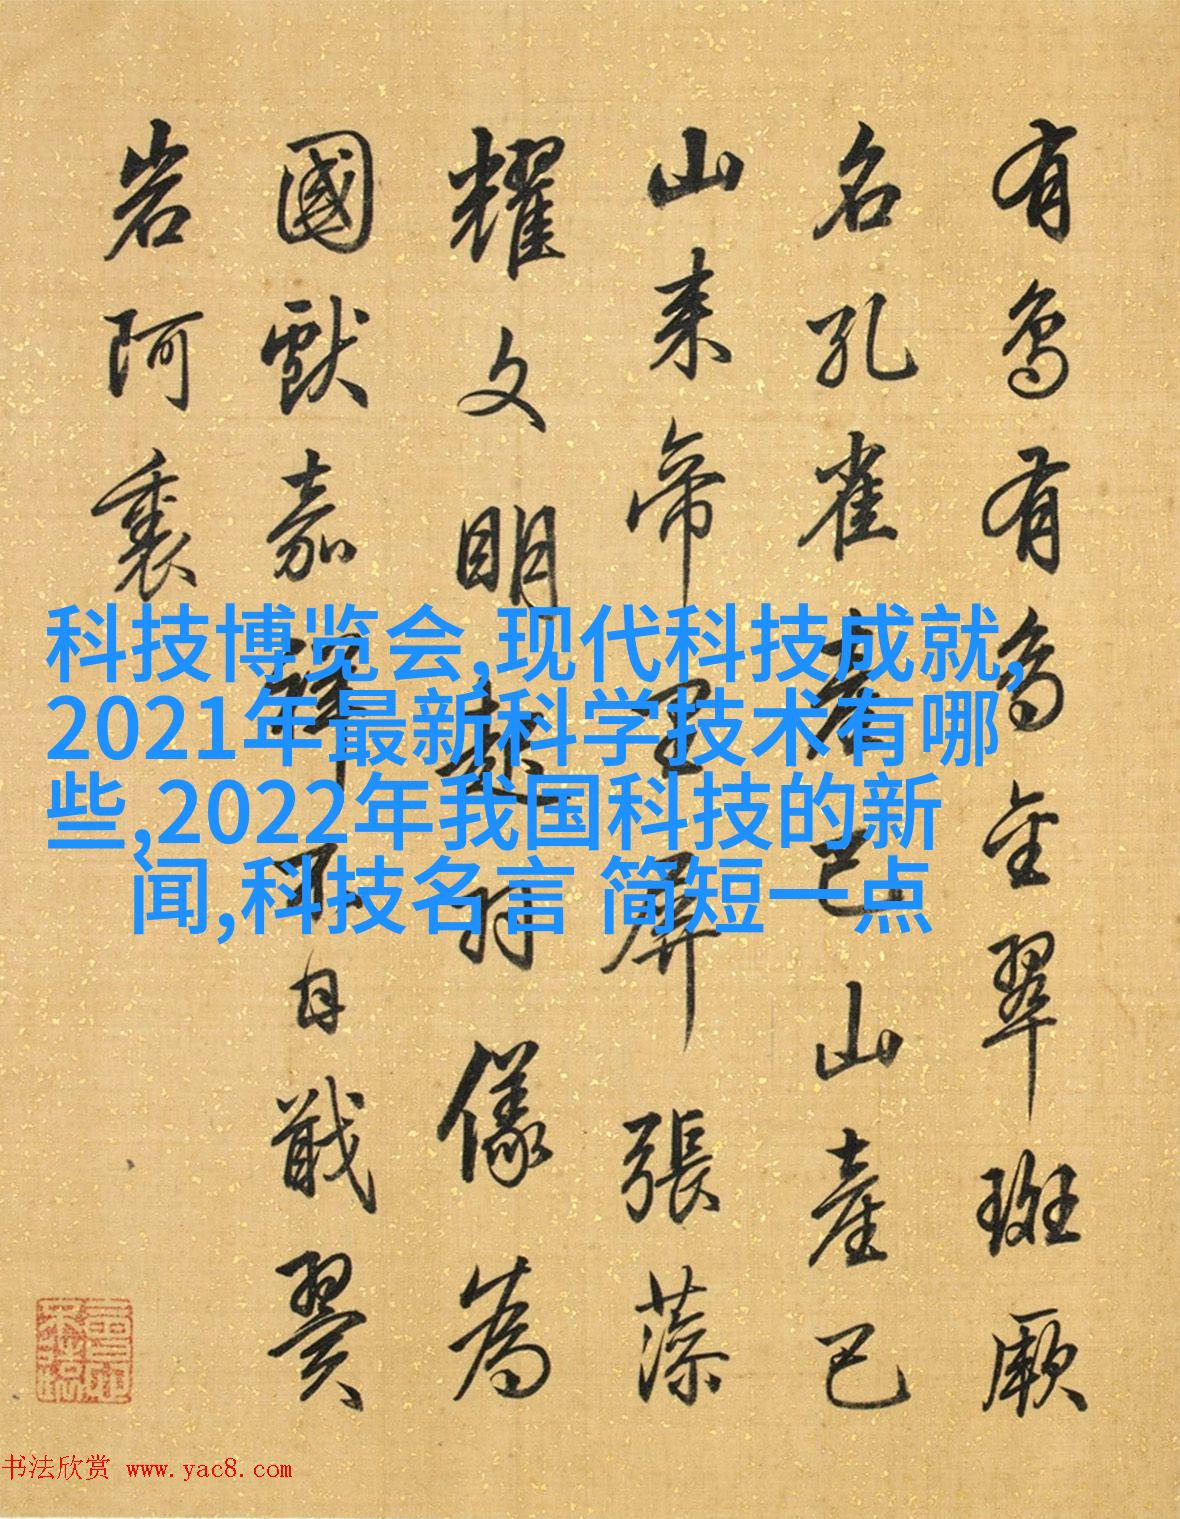 有鳥有鳥金翠斑厥
名孔雀產巴山產巴
山來帝里屏張藻
耀文明起羽儀為
國獻嘉禪不日戢翼
岩阿裏
科技博览会,现代科技成就,
2021年最新科学技术有哪
些,2022年我国科技的新
闻,科技名言 简短一点
书法欣赏 www.yac8.com